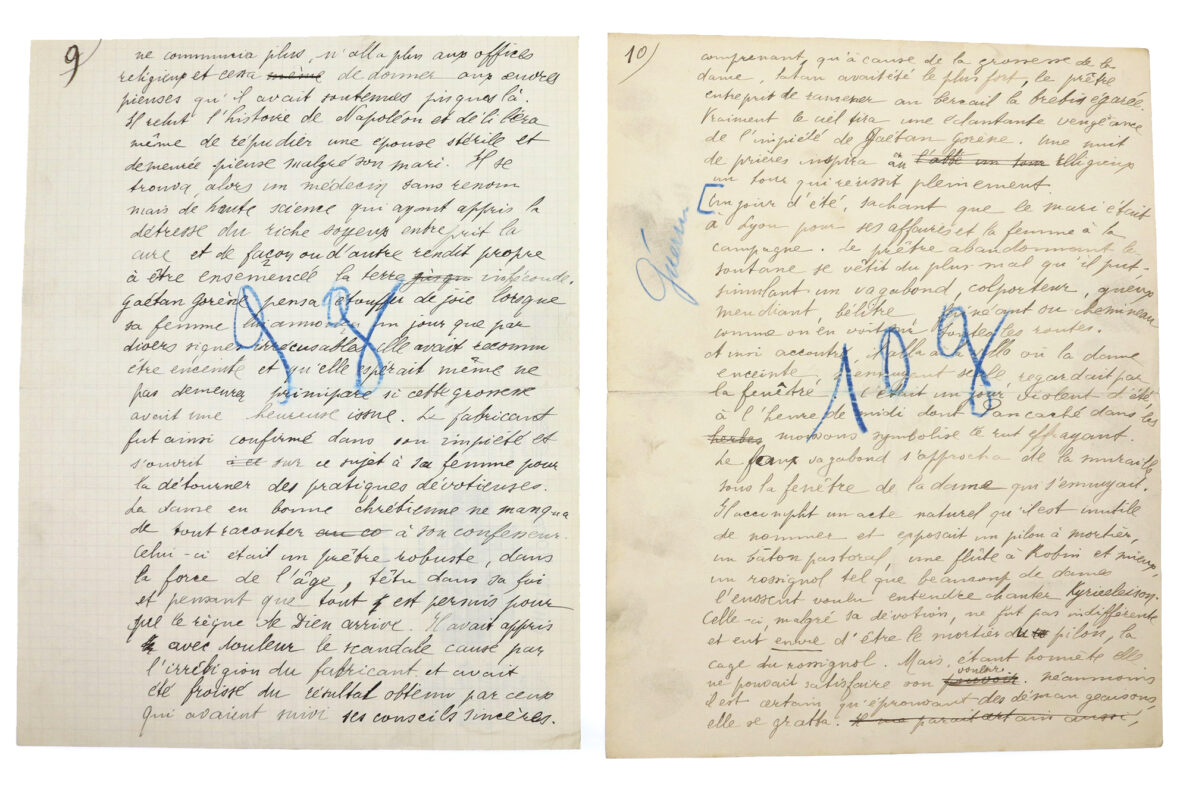 9)
ne communia plus, n'alla plus aux offices
religieux et cessa même de donner aux œuvres
pieuses qu'il avait soutenues jusques là.
Il relut l'histoire de Napoléon et délibéra
même de répudier une épouse stérile et
demeurée pieuse malgré son mari. Il se
trouva alors un médecin sans renom
mais de haute science qui ayant appris la
détresse du riche soyeux entreprit la
cure et de façon ou d'autre rendit propre
à être ensemencée la terre jusqu inféconde.
Gaétan Gorène pensa étouffer de joie lorsque
sa femme lui annonça un jour que par
divers signes irrécusables elle avait reconnu
être enceinte et qu'elle espérait même ne
pas demeurer primipare si cette grossesse
avait une heureuse issue. Le fabricant
fut ainsi confirmé dans son impiété et
s'ouvrit à ce sur ce sujet à sa femme pour
la détourner des pratiques dévotieuses.
La dame en bonne chrétienne ne manqua
de tout raconter au co à son confesseur.
Celui-ci était un prêtre robuste, dans
la force de l'âge, têtu dans sa foi
et pensant que tout est permis pour
que le règne de Dieu arrive. Il avait appris
avec douleur le scandale causé par
l'irréligion du fabricant et avait
été froissé du résultat obtenu par ceux
qui avaient suivi ses conseils sincères.
98
10)
comprenant, qu'à cause de la grossesse de la
dame, satan avait été le plus fort, le prêtre
entreprit de ramener au bercail la brebis égarée.
Vraiment le ciel tira une éclatante vengeance
de l'impiété de Gaétan Gorène. Une nuit
de prières inspira au l'abbé un tour religieux
un tour qui réussit pleinement.
[Un jour d'été, sachant que le mari était
à Lyon pour ses affaires et la femme à la
campagne. Le prêtre abandonnant la
soutane se vêtit du plus mal qu'il put
simulant un vagabond, colporteur, gueux
mendiant bélître, fainéant ou chemineau
comme on en voit sur toutes les routes.
Ainsi accoutré, il alla à la villa où la dame
enceinte s'ennuyant seule regardait par
la fenêtre. C'était un jour violent d'été,
à l'heure de midi dont l'ancarté dans les
herbes moissons symbolise le rut effrayant.
Le faux vagabond s'approcha de la muraille
sous la fenêtre de la dame qui s'ennuyait.
Il accomplit un acte naturel qu'il est inutile
de nommer et exposait un pilon à mortier,
un bâton pastoral, une flûte à Robin et mieux,
un rossignol tel que beaucoup de dames
l'eussent voulu entendre chanter Kyrie eleison.
Celle-ci, malgré sa dévotion, ne fut pas indifférente
et eut envie d'être le mortier du pilon, la
cage du rossignol. Mais, étant honnête elle
ne pouvait satisfaire son pouvoir vouloir. Néanmoins
il est certain qu'éprouvant des démangeaisons,
elle se gratta. Il me parait certain aussi,
108